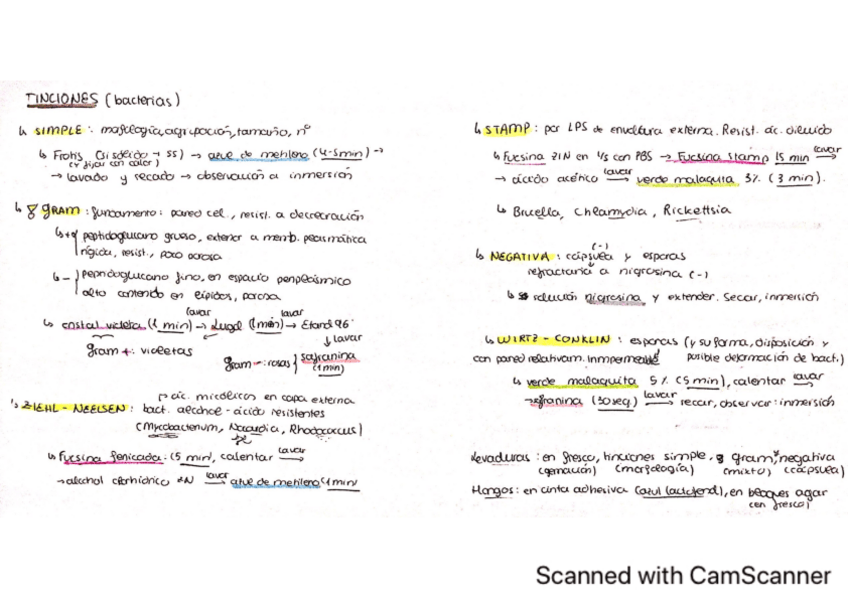 TINCIONES (bacterias)
↳ SIMPLE: morfología, agrupación, tamaño, nº
↳ Frotis (si sólido → SS) → azul de metileno (4-5min) →
(y fijar con calor)
→ lavado y secado → observación a inmersión
↳ GRAM: fundamento: pared cel., resist. a decoloración
↳ + peptidoglucano grueso, exterior a memb. plasmática
rígida, resist., poco porosa
↳ - peptidoglucano fino, en espacio periplásmico
alto contenido en lípidos, porosa
lavar lavar
↳ cristal violeta (1 min) → Lugol (1min) → Etanol 96
↓ lavar
gram +: violetas gram -: rosas safranina
(1 min)
↱ ác. micólicos en capa externa
ZIEHL-NEELSEN: bact. alcohol-ácido resistentes
(Mycobacterium, Nocardia, Rhodococcus)
↳ Fucsina fenicada (5 min), calentar lavar →
→ alcohol clorhídrico lavar → azul de metileno 1 min
↳ STAMP: por LPS de envoltura externa. Resist. ác. diluido
↳ Fucsina ZIN en 1/5 con PBS → Fucsina Stamp 15 min lavar →
→ ácido acético lavar → verde malaquita 3% (3 min).
↳ Brucella, Chlamydia, Rickettsia
(-)
↳ NEGATIVA: cápsula y esporas
refractaria a nigrosina (-)
↳ solución nigrosina y extender. Secar, inmersión
↳ WIRTZ-CONKLIN: esporas (y su forma, disposición y
con pared relativam. impermeable posible deformación de bact.)
↳ verde malaquita 5% (5 min), calentar lavar →
→ safranina (30 seg) lavar → secar, observar: inmersión
Levaduras: en fresco, tinciones simple, gram, negativa
(gemación) (morfología) (mixto) (cápsula)
Hongos: en cinta adhesiva (azul lactofenol), en bloques agar
(en fresco)
Scanned with CamScanner